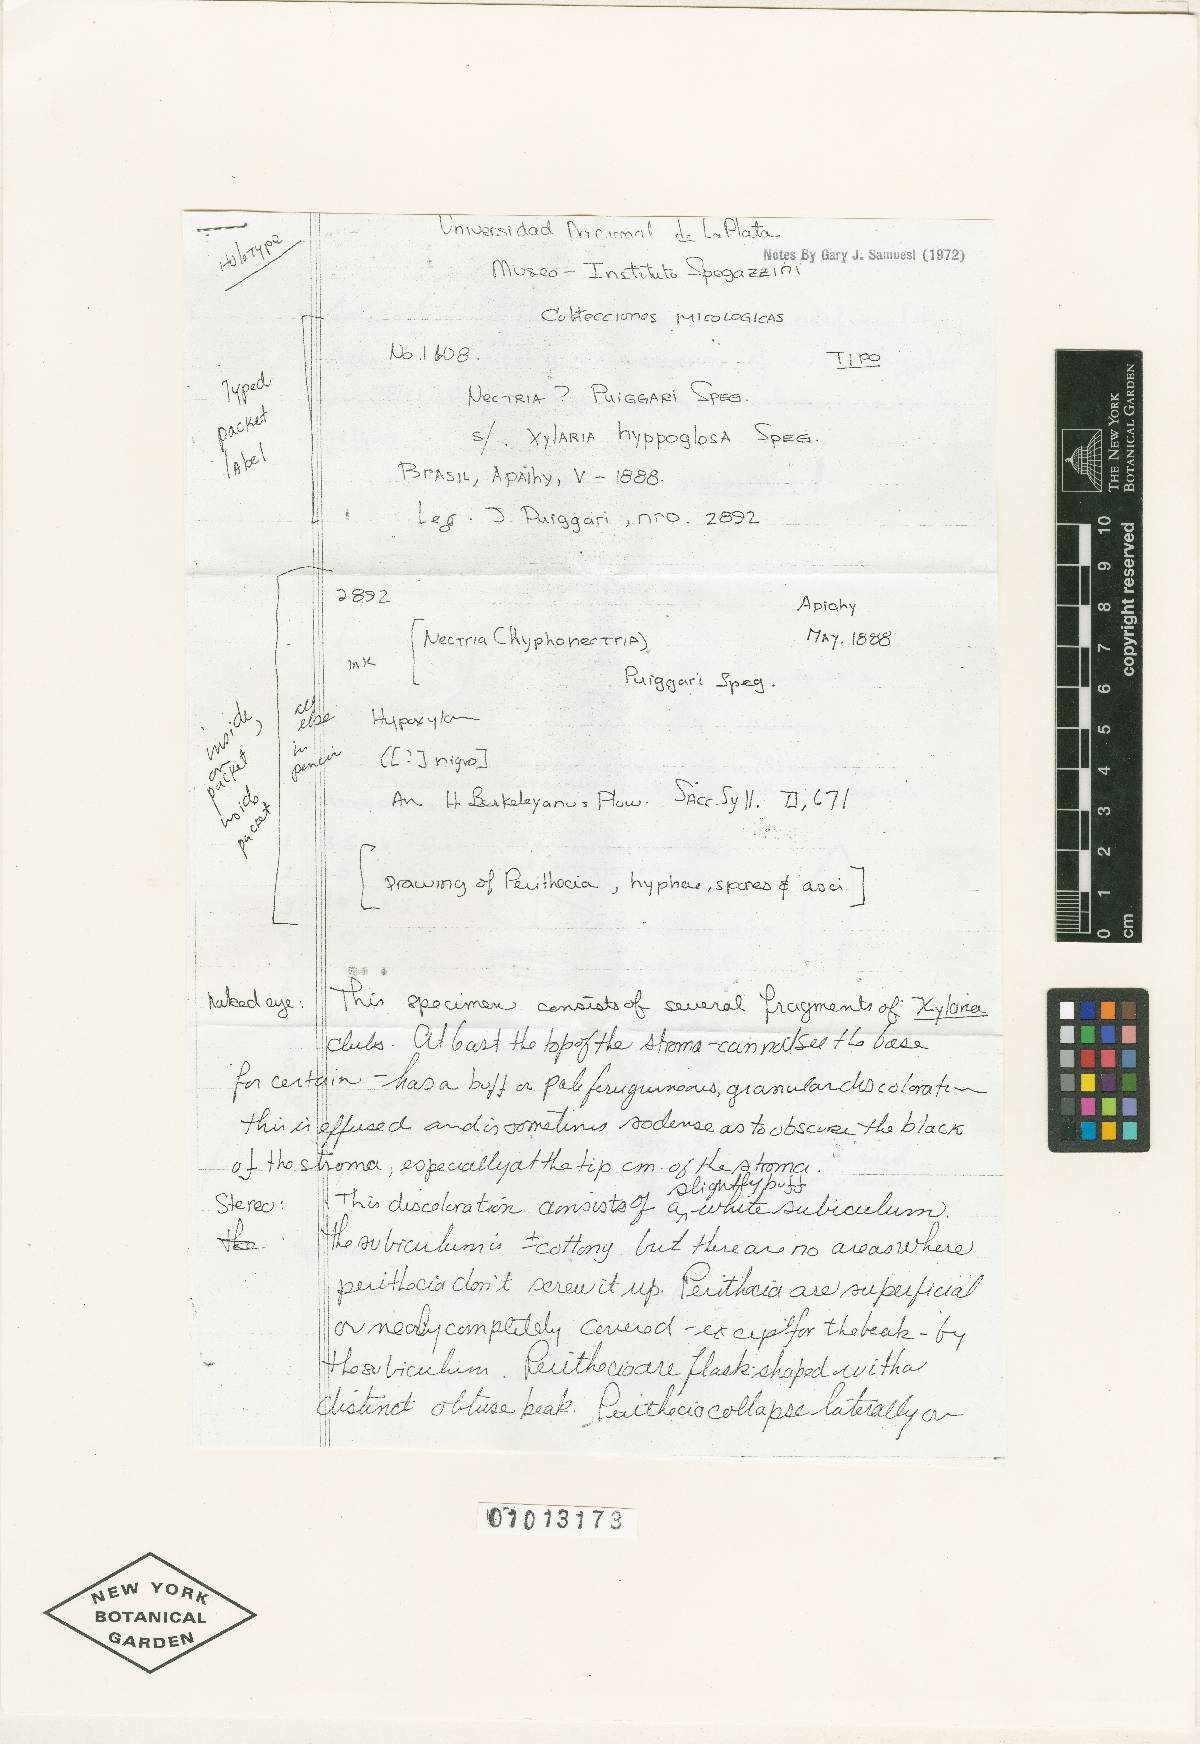 Universidad Nacional de La Plata
Notes By Gary J. Samuesl (1972)
Holotype
Museo - Instituto Spegazzini
Colecciones micologicas
No. 1608.
TIPO
Typed
packet
label
Nectria? Puiggari Speg.
s/. Xylaria hyppoglosa Speg.
Brasil, Apaihy, V - 1888.
Leg. J. Puiggari, nro. 2892
2892
Apiahy
May. 1888
ink
[Nectria (Hyphonectria)
Puiggari Speg.
inside,
on
packet
inside
packet
all
else
in
pencil
Hypoxylon
([?] nigro]
An H. Berkeleyanus Plow. Sacc. Syll. II, 671
[Drawing of Perithecia, hyphae, spores & asci]
Naked eye: This specimen consists of several fragments of Xylaria
clubs. At least the top of the stroma - cannot see the base
for certain - has a buff or pale ferugineous, granular discoloration
this is effused and is sometimes so dense as to obscure the black
of the stroma, especially at the tip cm. of the stroma.
Stereo: This discoloration consists of a slightly buff white subiculum.
the
The subiculum is ± cottony but there are no areas where
perithecia don't screw it up. Perithecia are superficial
or nearly completely covered - except for the beak - by
the subiculum. Perithecia are flask-shaped with a
distinct obtuse beak. Perithecia collapse laterally or
THE NEW YORK
BOTANICAL GARDEN
copyright reserved
10
9
8
7
6
5
4
3
2
1
0
cm
01013173
NEW YORK
BOTANICAL
GARDEN